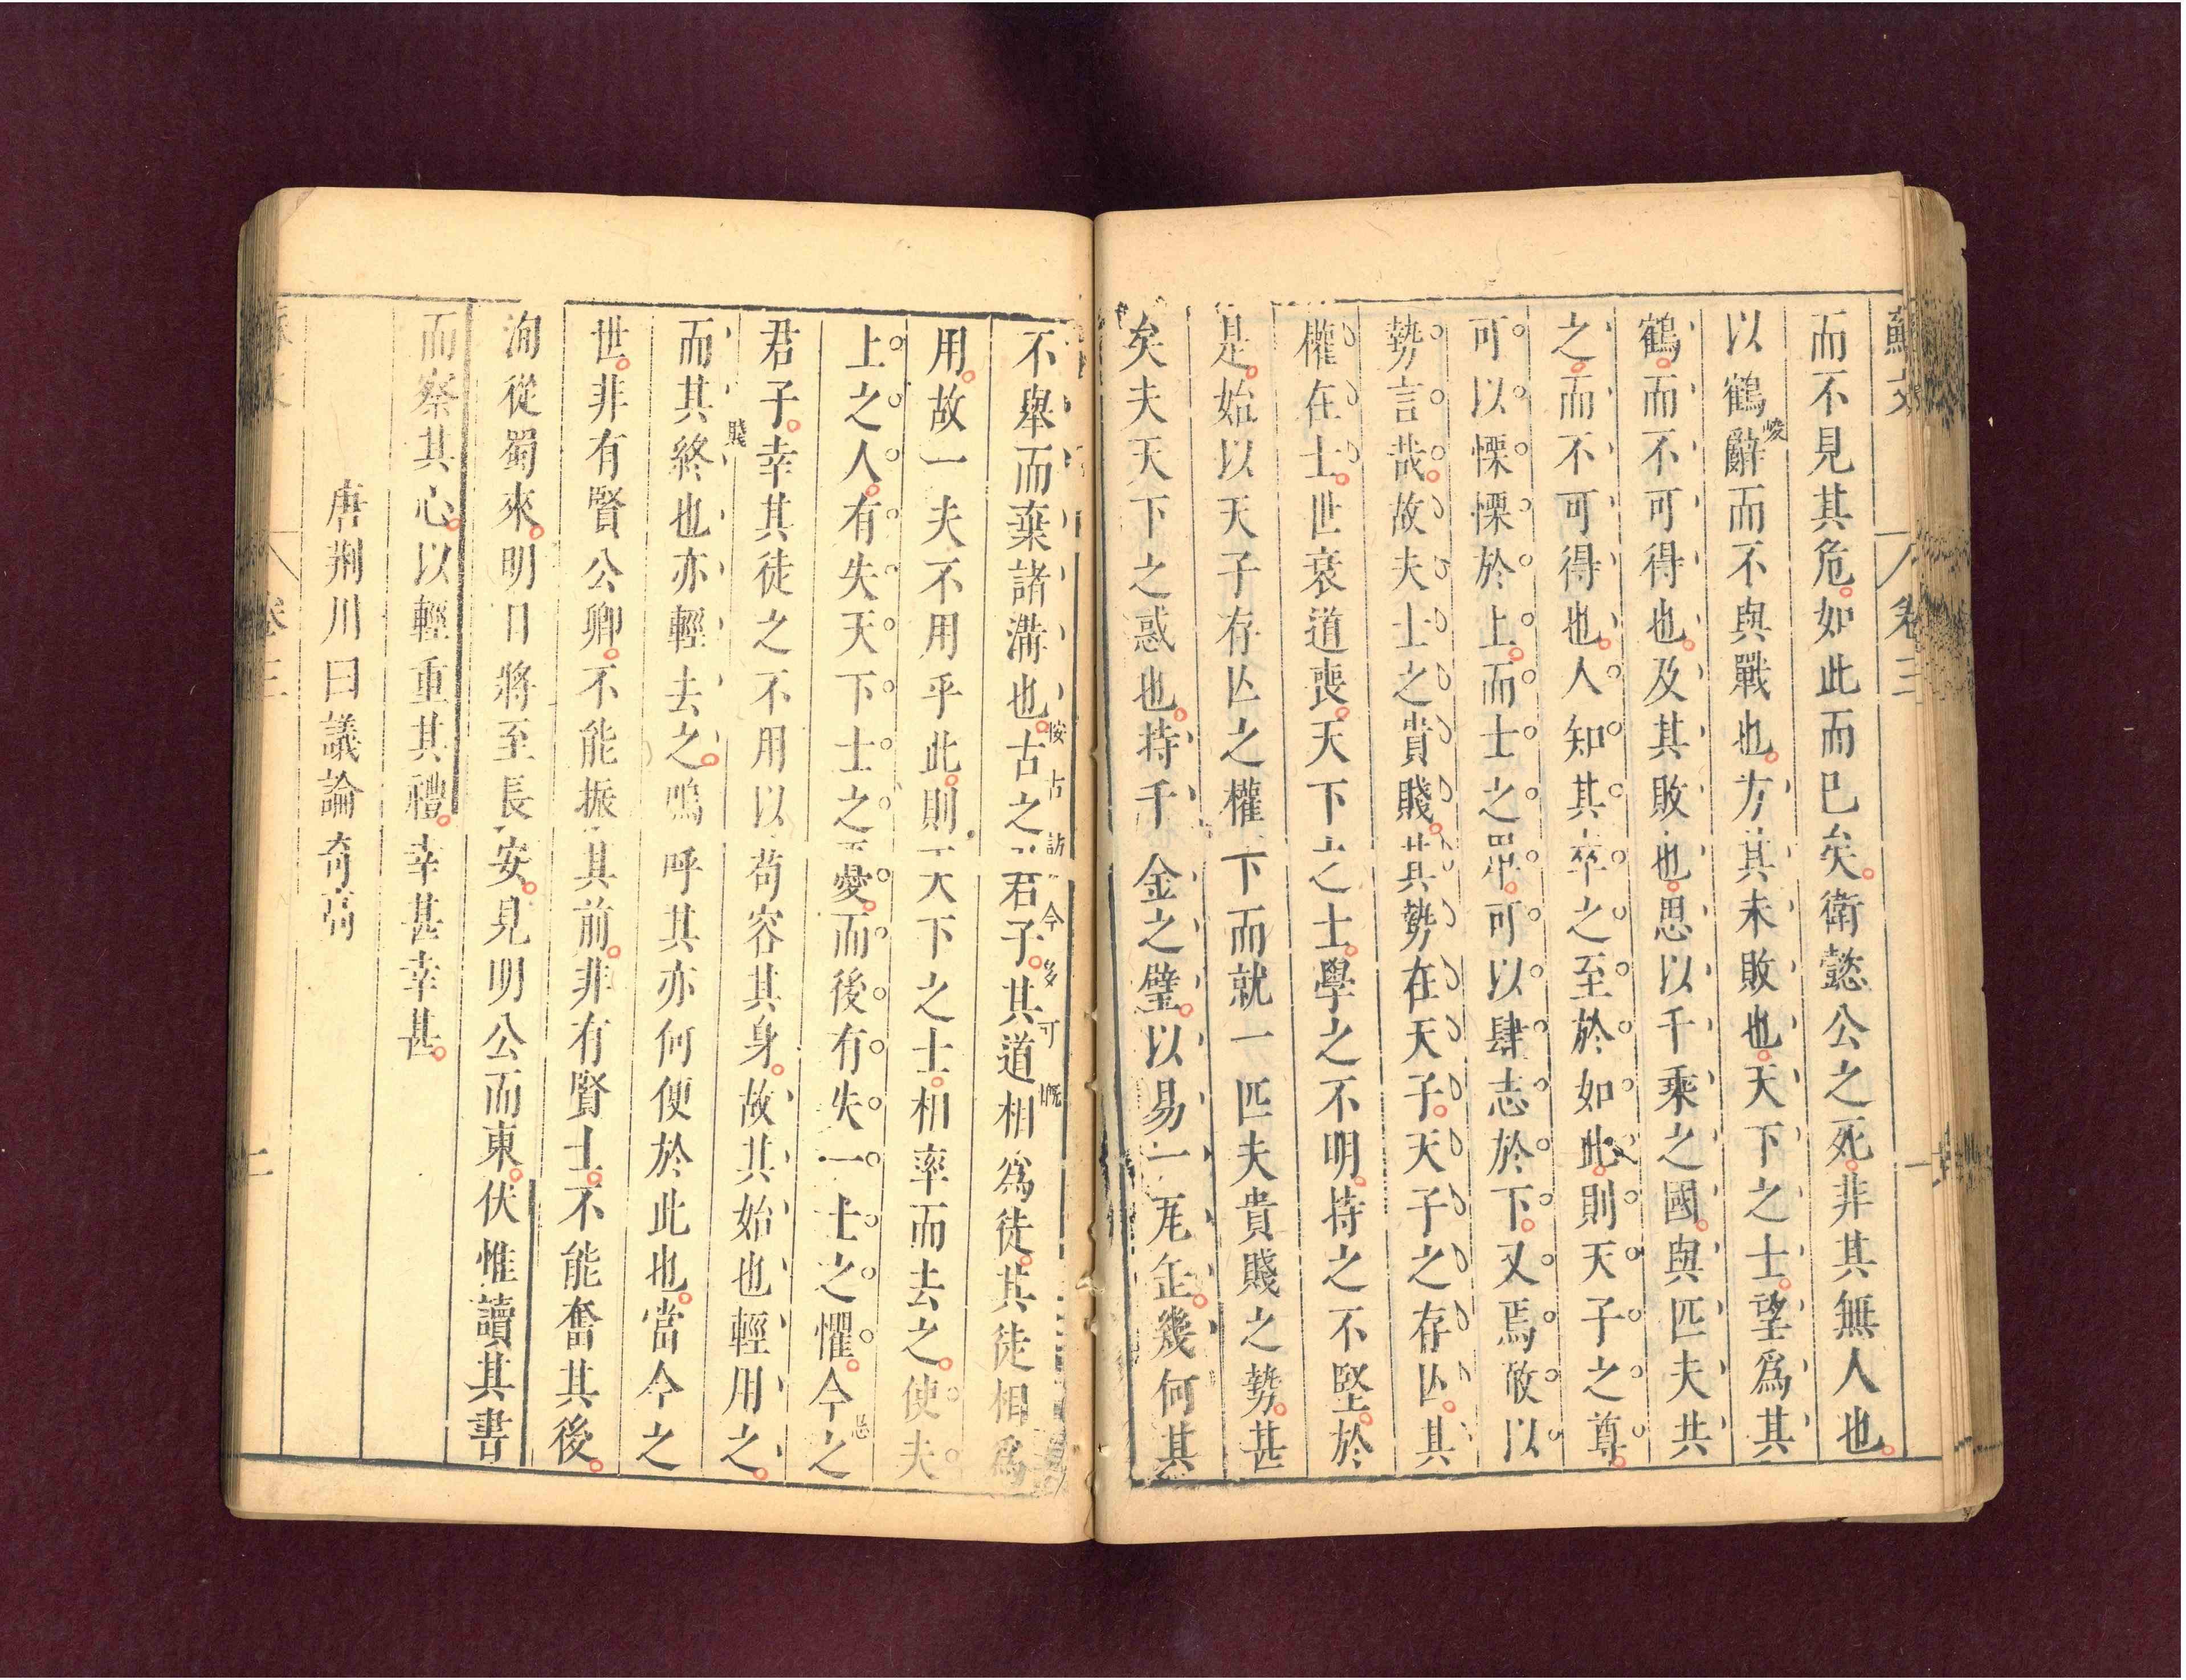 蘇文 卷三
而不見其危如此而已矣衛懿公之死非其無人也
以鶴辭而不與戰也方其未敗也天下之士望爲其
峻
鶴而不可得也及其敗也思以千乘之國與匹夫共
之而不可得也人知其卒之至於如此則天子之尊
可以慄慄於上而士之眾可以肆志於下又焉敢以
勢言哉故夫士之貴賤其勢在天子天子之存亾其
權在士世衰道喪天下之士學之不明持之不堅於
是始以天子存亾之權下而就一匹夫貴賤之勢甚
矣夫天下之惑也持千金之璧以易一瓦缶幾何其
不舉而棄諸溝也古之君子其道相爲徒其徒相爲
按古訪今多可慨
用故一夫不用乎此則天下之士相率而去之使夫
上之人有失天下士之憂而後有失一士之懼今之
君子幸其徒之不用以苟容其身故其始也輕用之
賤
而其終也亦輕去之嗚呼其亦何便於此也當今之
世非有賢公卿不能振其前非有賢士不能奮其後
洵從蜀來明日將至長安見明公而東伏惟讀其書
而察其心以輕重其禮幸甚幸甚
唐荆川曰議論奇高
卷三